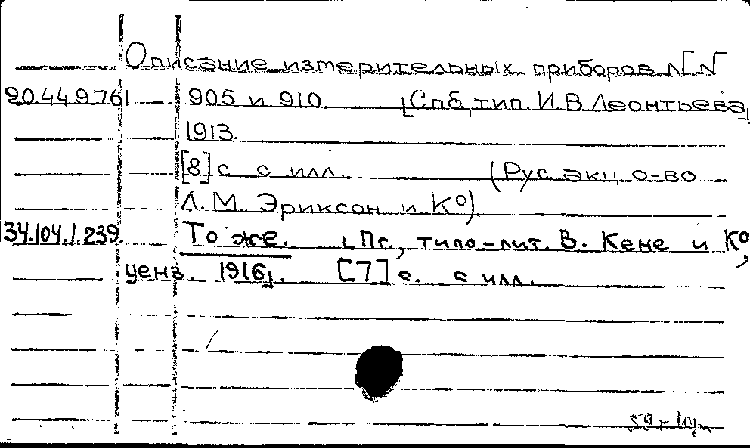 Описание измерительных приборов №№
20.44.9.761 905 и 910. [Спб, тип. И.В. Леонтьева,
1913.
[8] с. с илл. (Рус. акц. о-во
Л. М. Эриксон и Ко)
34.104.1.239 То же. [Пг., типо-лит. В. Кене и Ко,
ценз. 1916]. [7] с. с илл.